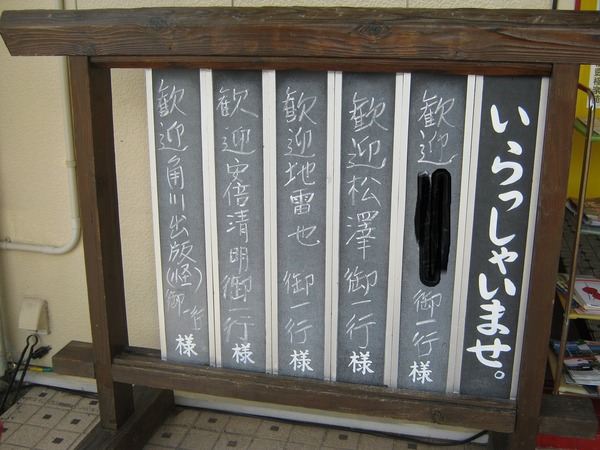 いらっしゃいませ。
歓迎 御一行様
歓迎 松澤 御一行様
歓迎 地雷也 御一行様
歓迎 安倍清明御一行様
歓迎 角川出版(怪)御一行様